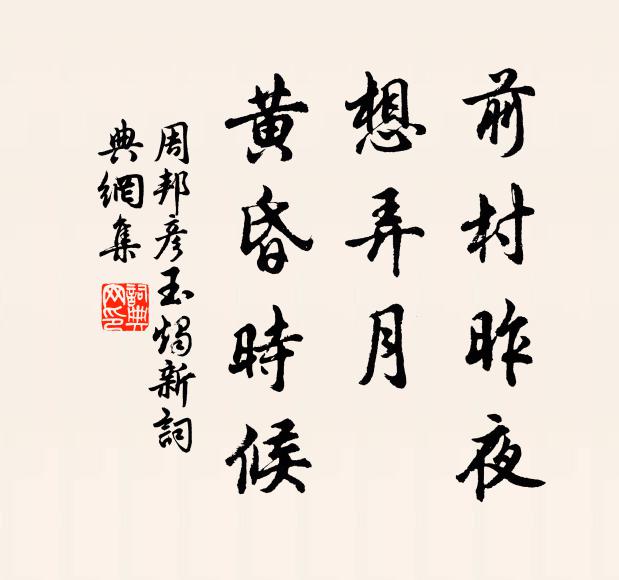 前村昨夜
想弄月
黄昏時候
周邦彦玉燭新詞
典網集
詞典网印